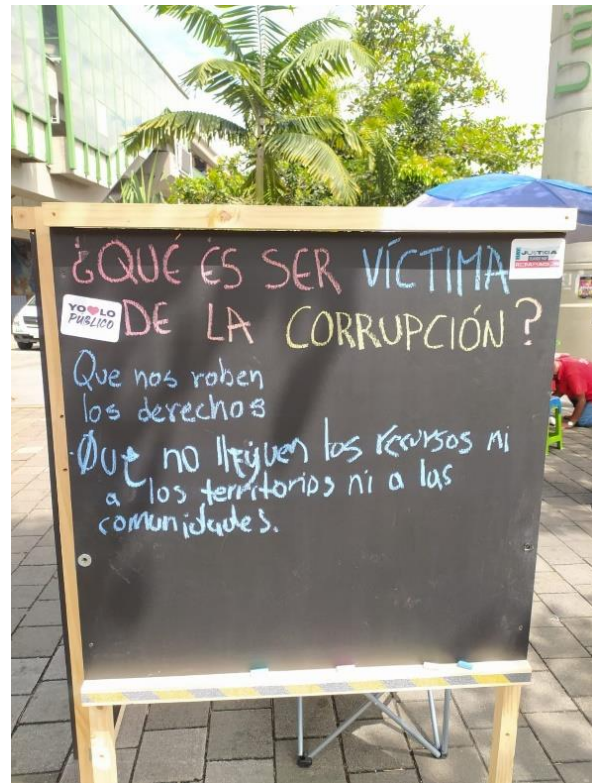 ¿QUÉ ES SER VÍCTIMA
DE LA CORRUPCIÓN?
YO LO
PÚBLICO
JUSTICIA
Que nos roben
los derechos
Que no lleguen los recursos ni
a los territorios ni a las
comunidades.